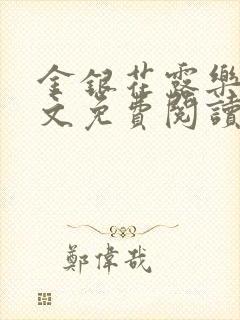 金銀花露樂
文免費閱讀
鄭偉哉